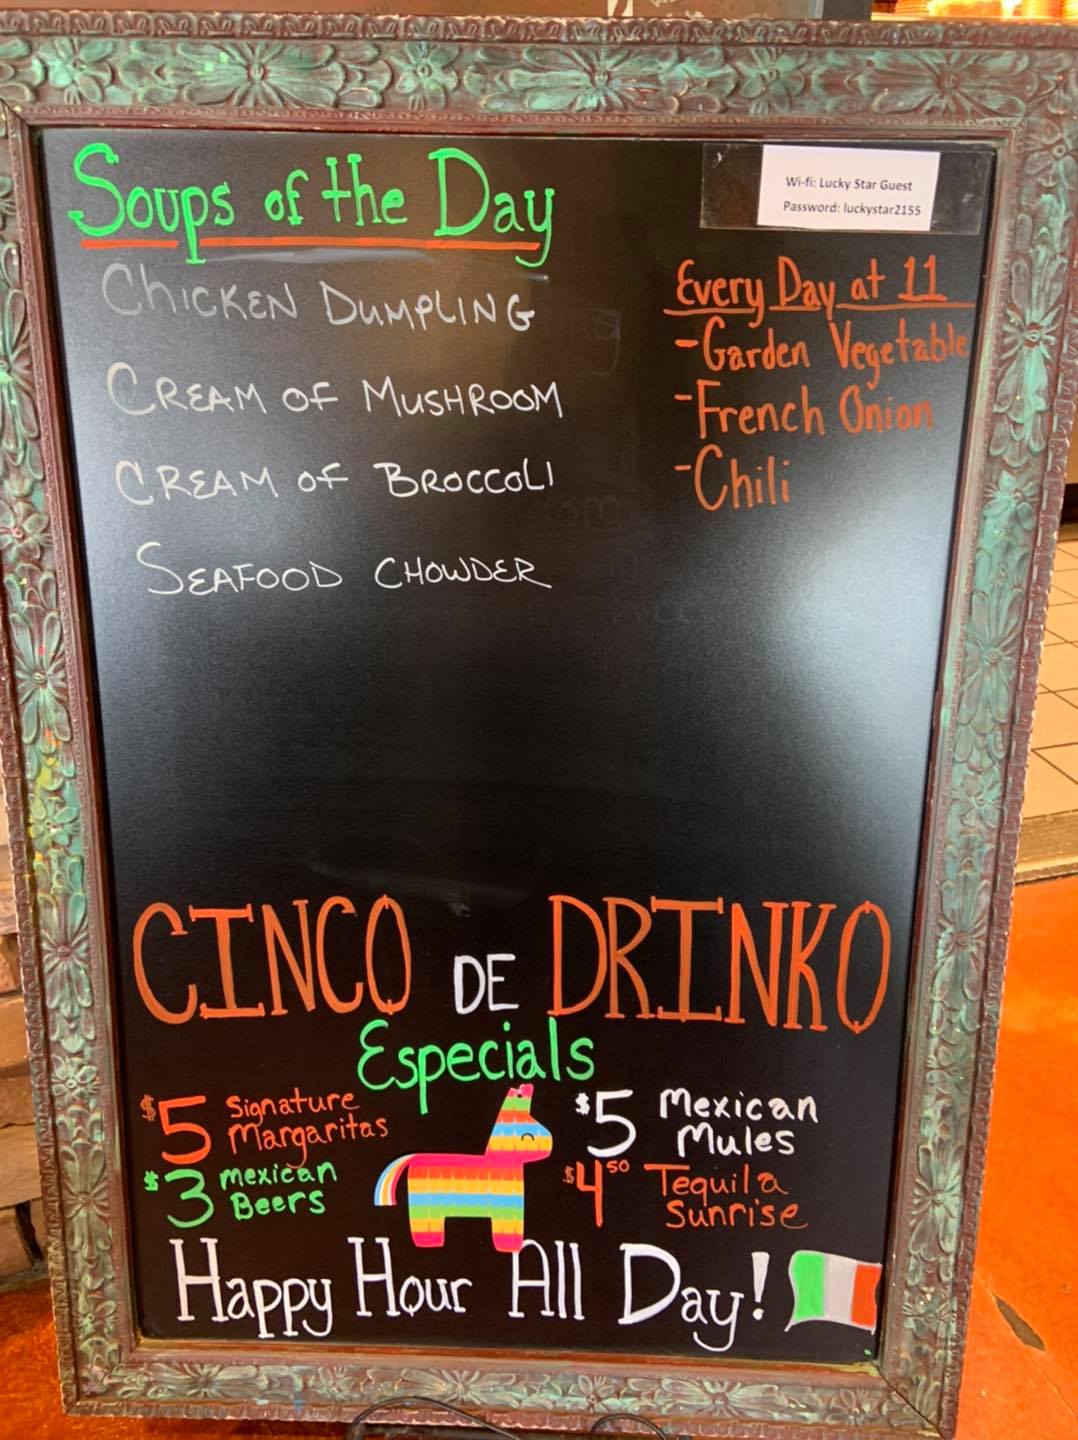 Soups of the Day
Chicken Dumpling
Cream of Mushroom
Cream of Broccoli
Seafood Chowder
Wi-fi: Lucky Star Guest
Password: luckystar2155
Every Day at 11
-Garden Vegetable
-French Onion
-Chili
CINCO DE DRINKO
Especials
$5 Signature
Margaritas
$3 Mexican
Beers
$5 Mexican
Mules
$4⁵⁰ Tequila
Sunrise
Happy Hour All Day!